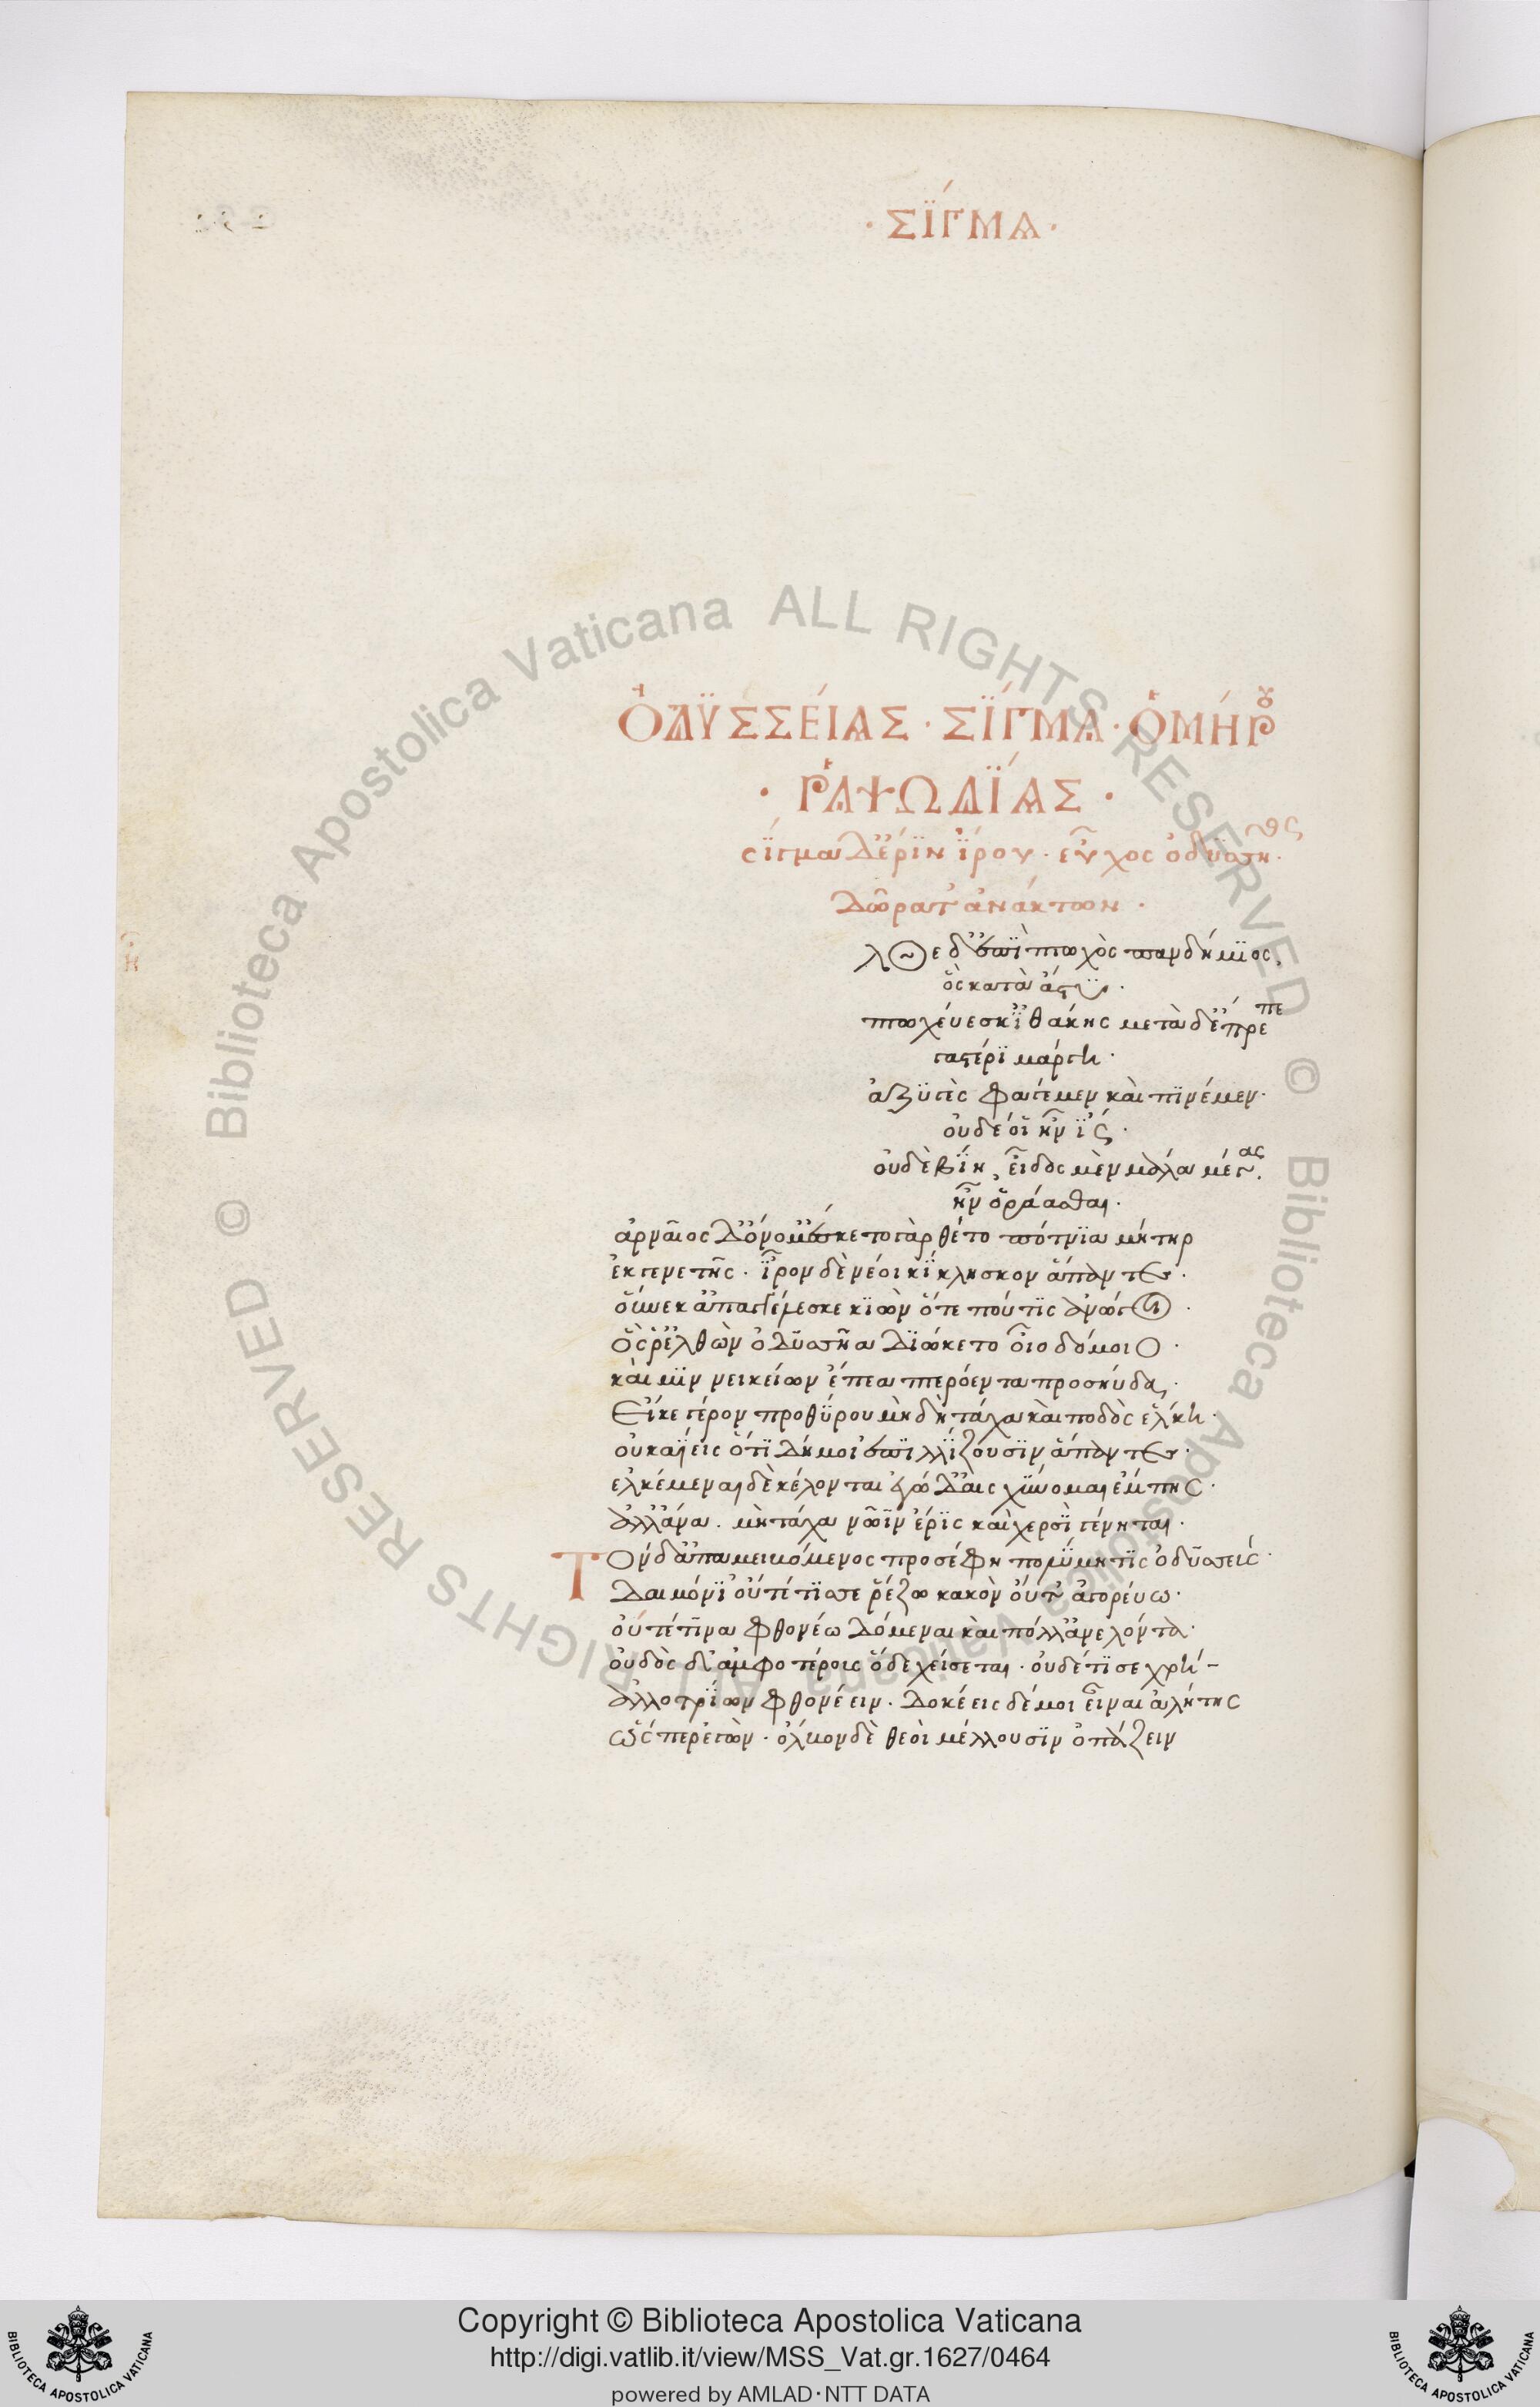 · ΣΪ́ΓΜΑ ·
ὈΔΫΣΣΕΊΑΣ · ΣΪ́ΓΜΑ · ὉΜΉΡου
· ῬΑΨΩΔΪ́ΑΣ ·
σΐγμα δ' ἔρϊν ἴρου · εὖχος ὀδϋσῆος ·
δῶρα τ' ἀνάκτων ·
λθε δ' ἐπὶ πτωχὸς πανδήμϊος,
ὃς κατὰ ἄστϋ ·
πτωχεύεσκ' ἰθάκης μετὰ δ' ἔπρεπε
γαστέρϊ μάργη ·
ἀζϋχὲς φαγέμεν καὶ πϊνέμεν ·
οὐδέ οἱ ἦν ἲς ·
οὐδὲ βΐη, εἶδος μὲν μάλα μέγας
ἦν ὁράασθαι ·
ἀρναῖος δ' ὄνομ' ἔσκε τὸ γὰρ θέτο πότνϊα μήτηρ
ἐκ γενετῆς · ἶρον δὲ νέοι κΐκλησκον ἅπαντες ·
οὕνεκ' ἀπαγγέλλεσκε κϊὼν ὅτε πού τϊς ἀνώγοι ·
ὅς ῥ' ἐλθὼν ὀδϋσῆα δϊώκετο οἷο δόμοιο ·
καί μϊν νεικείων ἔπεα πτερόεντα προσηύδα ·
Εἶκε γέρον προθΰρου μὴ δὴ τάχα καὶ ποδὸς ἕλκη ·
οὐκ ἀΐεις ὅτϊ δή μοι ἐπϊλλΐζουσϊν ἅπαντες ·
ἑλκέμεναι δὲ κέλονται ἐγὼ δ' αἰσχΰνομαι ἔμπης ·
ἀλλ' ἄνα · μὴ τάχα νῶϊν ἔρϊς καὶ χερσὶ γένηται ·
Τὸν δ' ἀπαμειβόμενος προσέφη πολΰμητϊς ὀδϋσσεύς ·
δαιμόνϊ' οὔτέ τϊ σε ῥέζω κακὸν οὔτ' ἀγορεύω ·
οὔτέ τϊνα φθονέω δόμεναι καὶ πόλλ' ἀνελόντα ·
οὐδὸς δ' ἀμφοτέρους ὅδε χείσεται · οὐδέ τϊ σε χρὴ -
ἀλλοτρΐων φθονέειν · δοκέεις δέ μοι εἶναι ἀλήτης
ὥς περ ἐγὼν · ὄλβον δὲ θεοὶ μέλλουσϊν ὀπάζειν
Copyright © Biblioteca Apostolica Vaticana
http://digi.vatlib.it/view/MSS_Vat.gr.1627/0464
powered by AMLAD·NTT DATA
BIBLIOTECA APOSTOLICA VATICANA
BIBLIOTECA APOSTOLICA VATICANA
© Biblioteca Apostolica Vaticana ALL RIGHTS RESERVED © Biblioteca Apostolica Vaticana ALL RIGHTS RESERVED